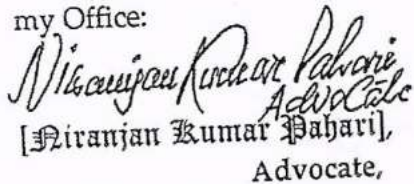 my Office:
Niranjan Kumar Pahari
Advocate
[Niranjan Kumar Pahari],
Advocate,